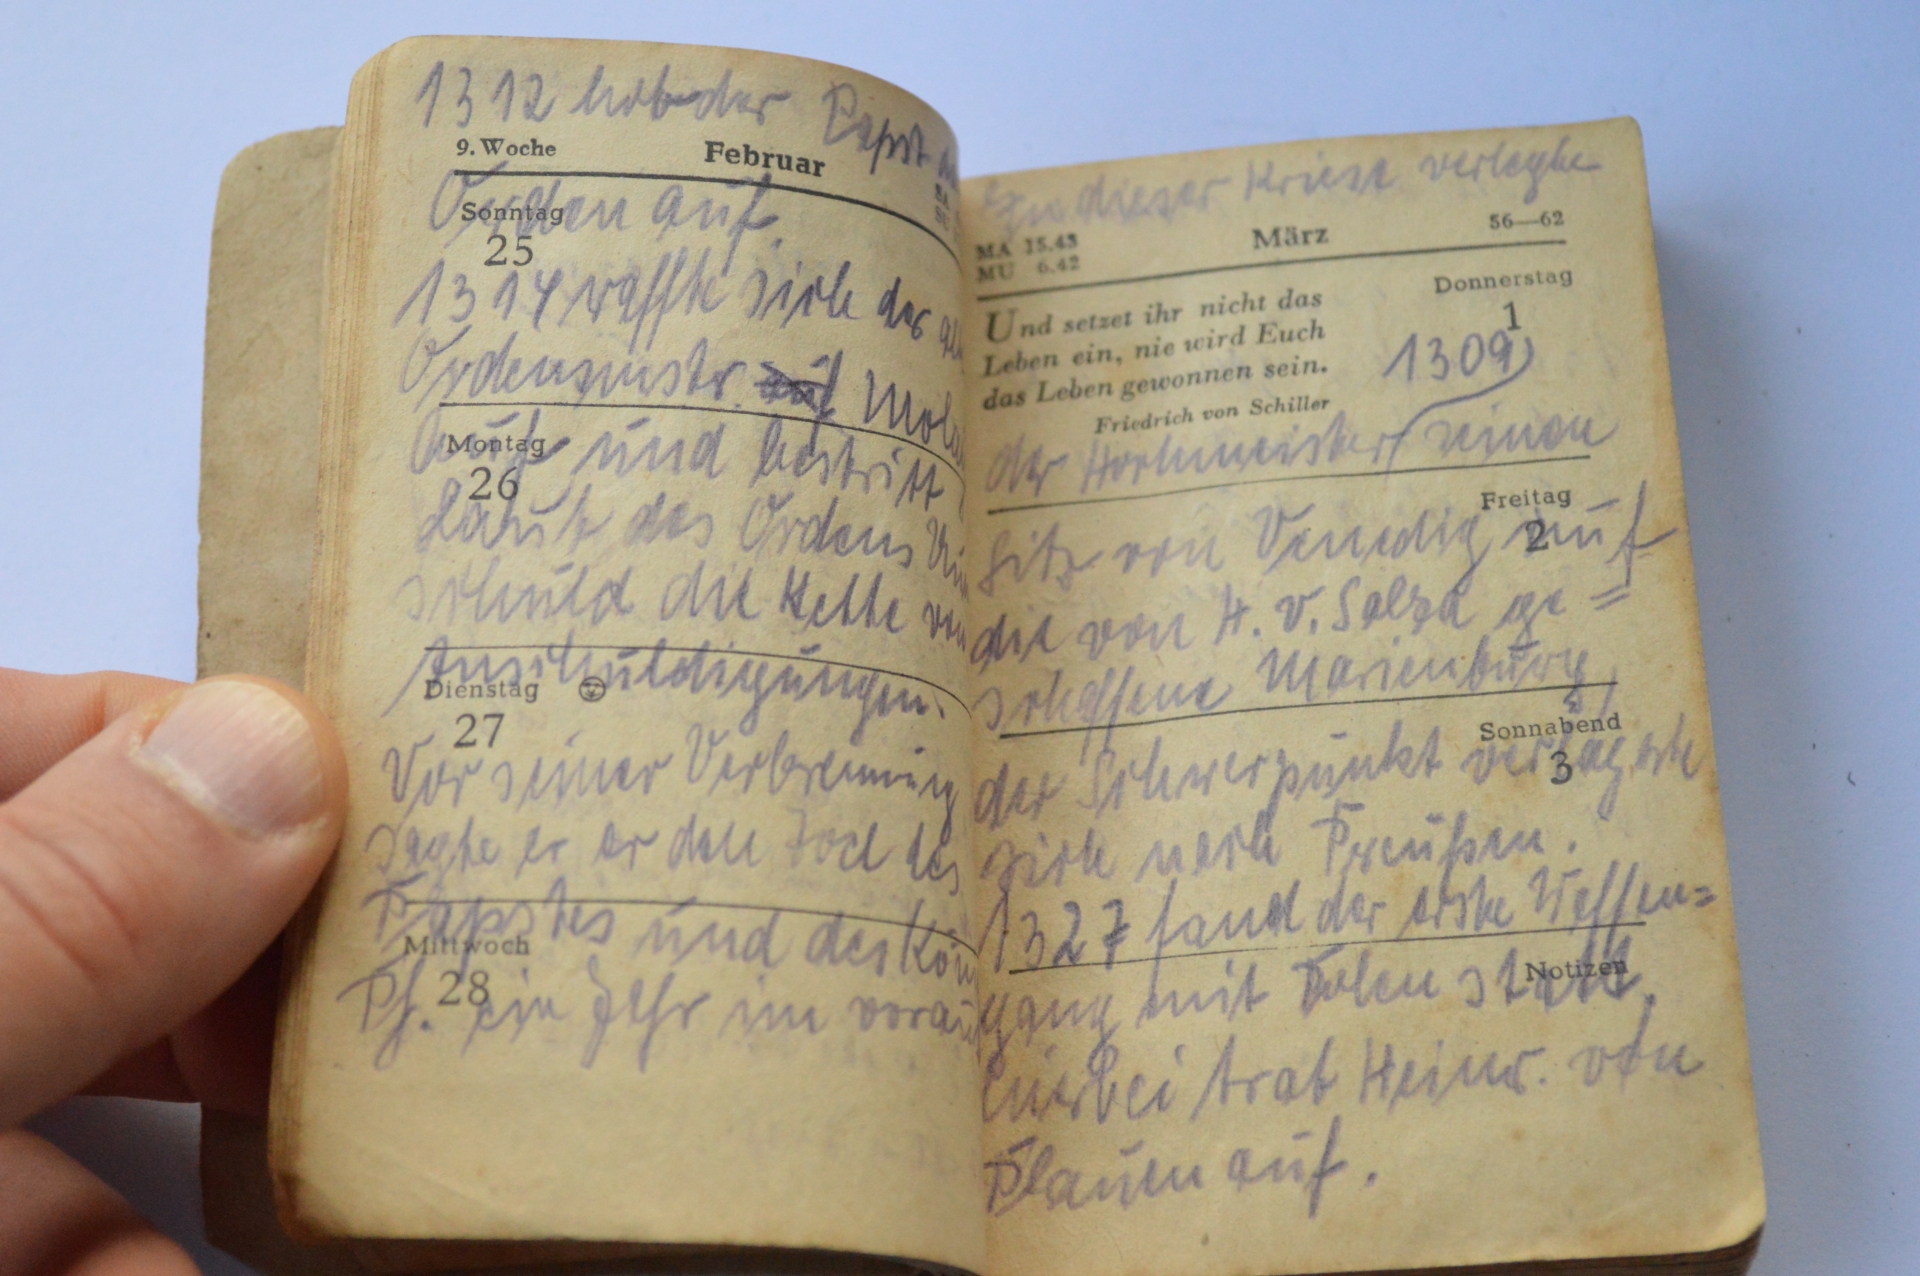 1312 hob der Papst
9. Woche Februar
Orden auf.
Sonntag
25
1314 raffte sich der
Ordensmstr. auf
Montag
auf und bestritt
26
Laute des Ordens
schuld die Kette von
Anschuldigungen.
Dienstag
27
Vor seiner Verbrennung
sagte er er den Tod des
Papstes und des
Mittwoch
28
Ph. ein Jahr im
In dieser Kriese verlegte
MA 15.43 März 56—62
MU 6.42
Donnerstag
1
Und setzet ihr nicht das
Leben ein, nie wird Euch
das Leben gewonnen sein.
Friedrich von Schiller
1309
der Hochmeister seinen
Freitag
2
Sitz von Venedig auf
die von H. v. Salza ge=
schaffene Marienburg,
Sonnabend
3
der Schwerpunkt verlagerte
sich nach Preußen.
1327 fand der erste Waffen=
Notizen
gang mit Polen statt.
hierbei trat Heinr. von
Plauen auf.